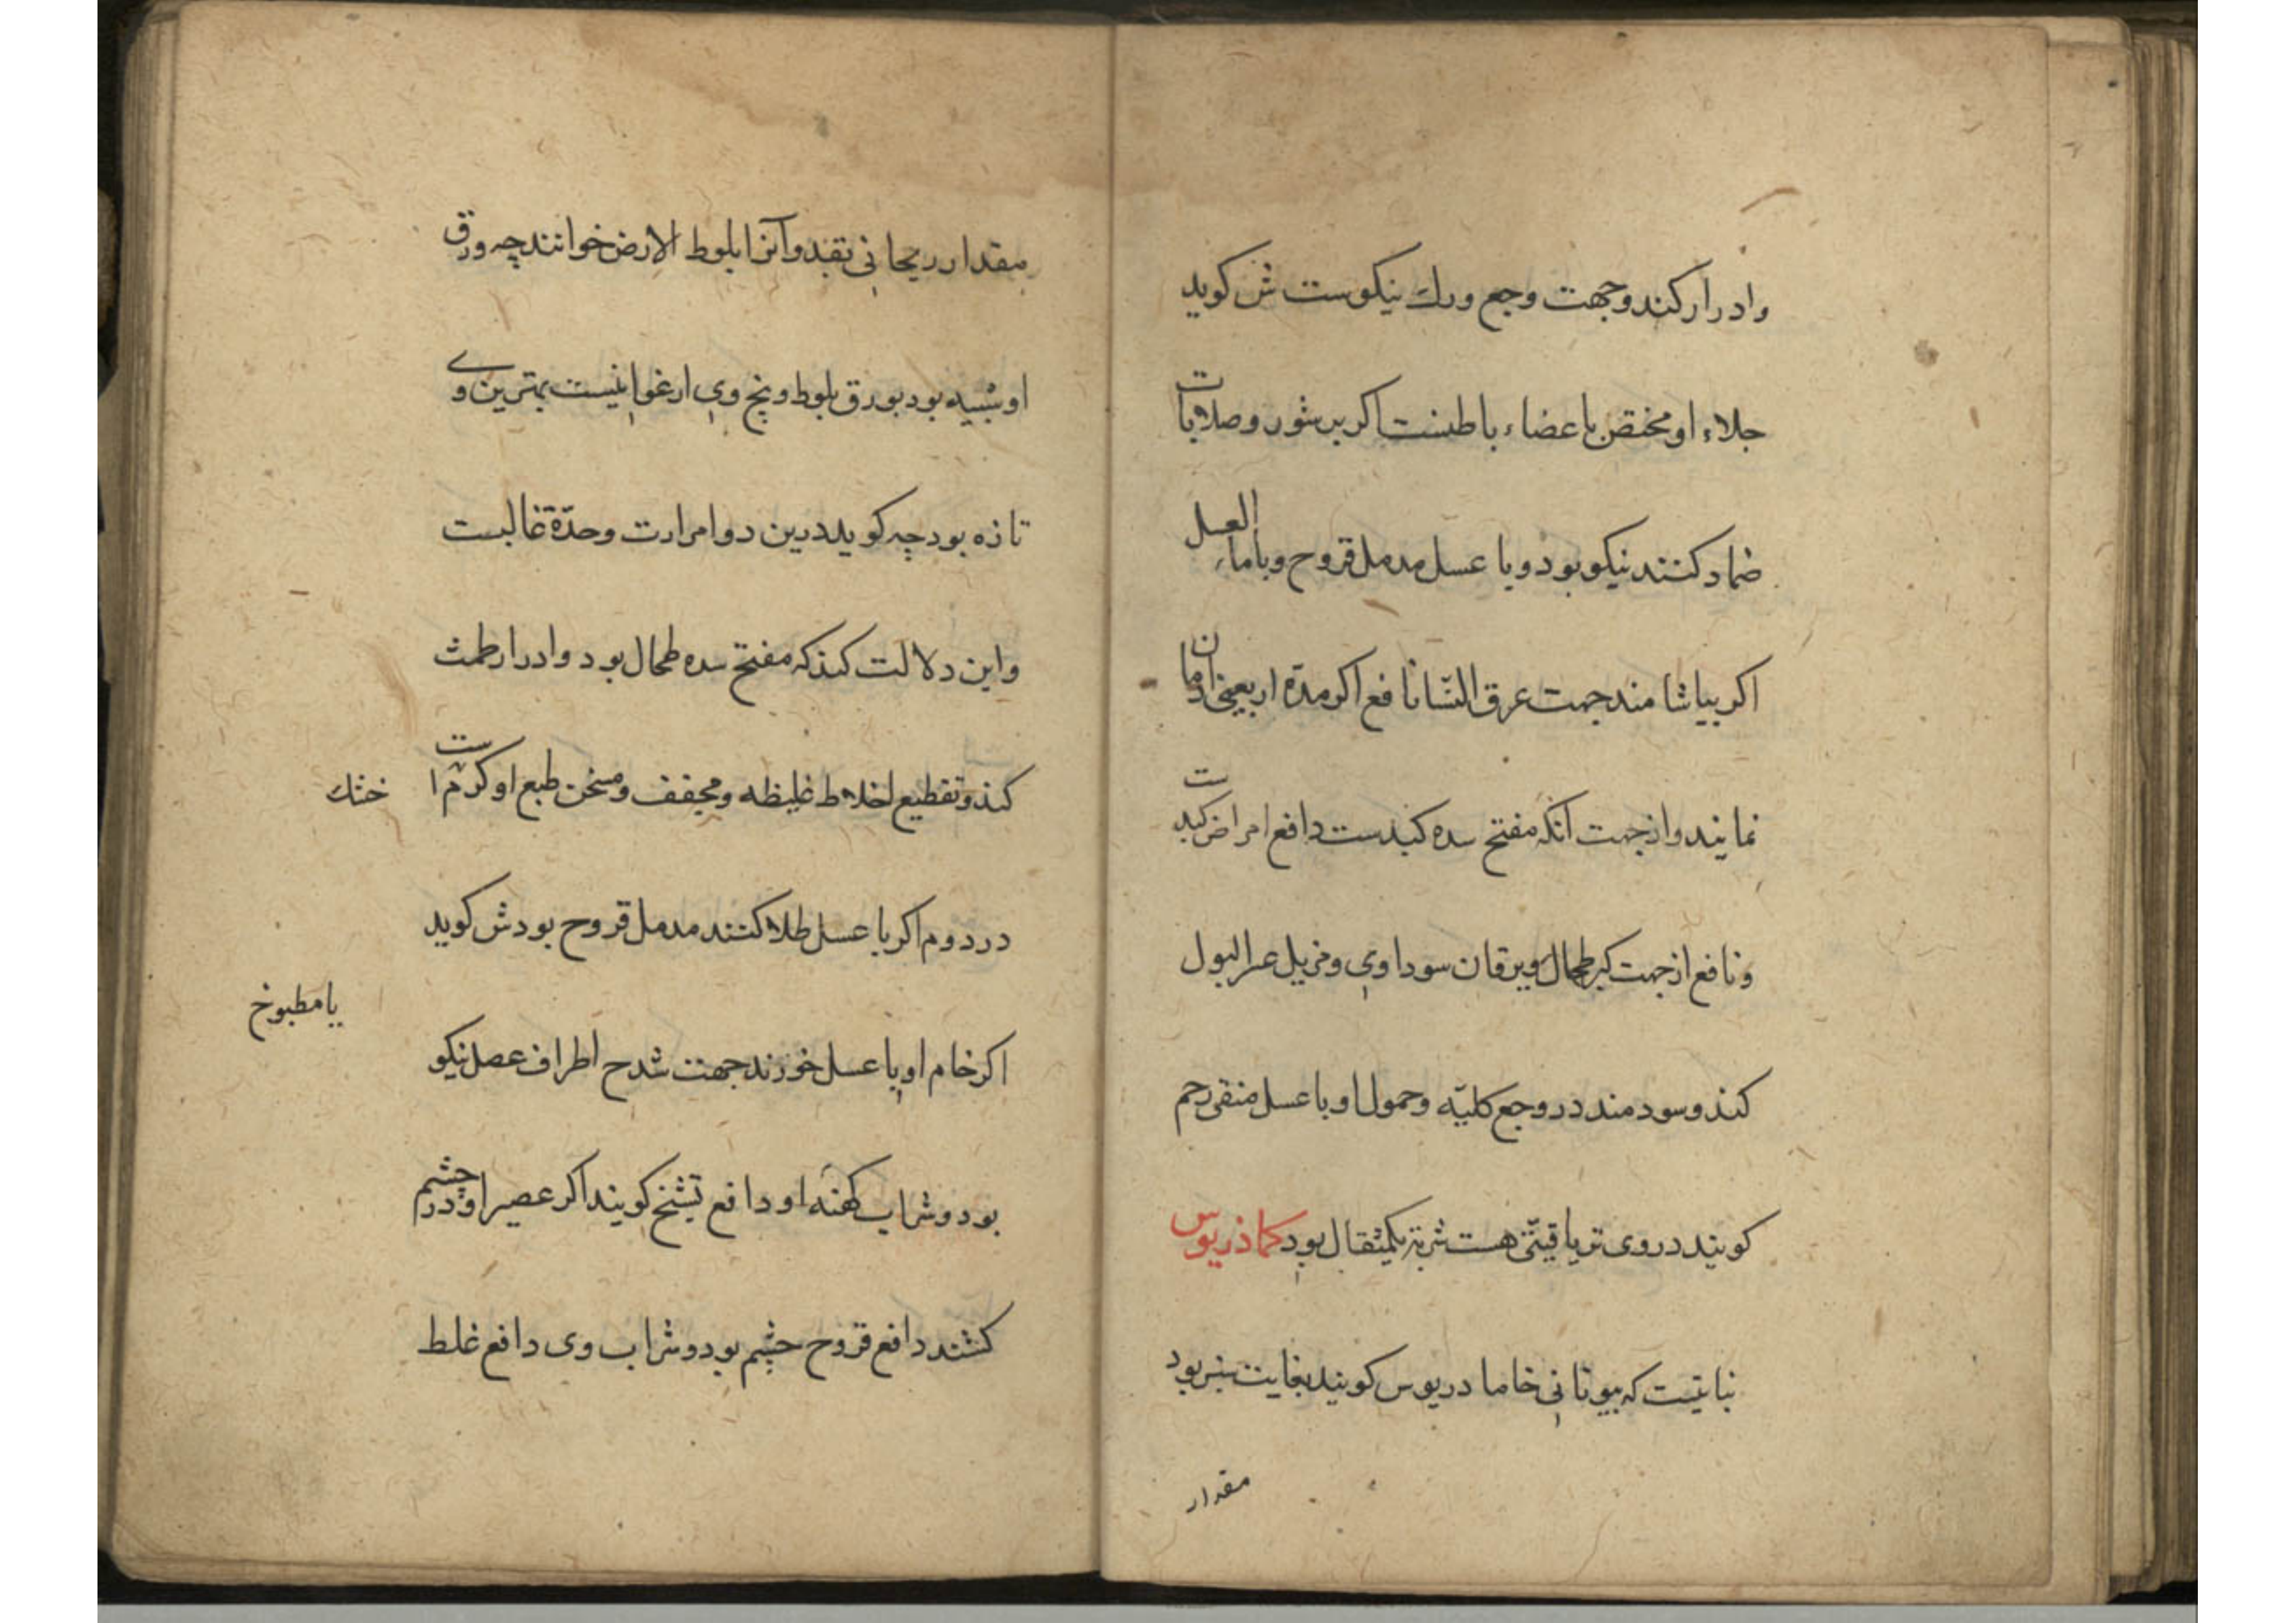 وادرار کند وجهت وجع ورك نیکوست ش کوید
جلاء او مختص باعضاء باطنست اکر بر بثور وصلابات
ضماد کنند نیکو بود و با عسل مدمل قروح وبا ماء العسل
اکر بیاشامند جهت عرق النسا نافع اکر مدة اربعین ادمان
نمایند واز جهت آنکه مفتح سده کبدست دافع امراض کبدست
ونافع از جهت کبر طحال ویرقان سوداوی ومزیل عسر البول
کند وسودمند در وجع کلیّه وحمول او با عسل منقی رحم
کویند در وی تریاقیتی هست شربة یکمثقال بود کماذریوس
نباتیست که بیونانی خامادریوس کویند بغایت سبز بود
مقدار
مقدار ریحانی نقند وآنرا بلوط الارض خوانند چه ورق
او شبیه بود بورق بلوط وبیخ وی ارغوانیست بهترین وی
تازه بود چه کوید درین دوا مرارت وحدّة غالبست
واین دلالت کند که مفتح سده طحال بود وادرار طمث
کند وتقطیع اخلاط غلیظه ومجفف ومسخن طبع او کرم است
خشك
در دوم اکر با عسل طلا کنند مدمل قروح بود ش کوید
یا مطبوخ
اکر خام او با عسل خورند جهت شدح اطراف عضل نیکو
بود وشراب کهنه او دافع تشنج کویند اکر عصیر او در چشم
کشند دافع قروح چشم بود وشراب وی دافع غلظ